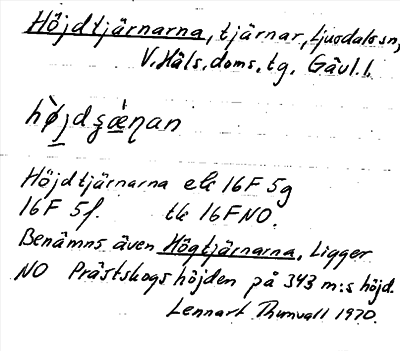 Höjdtjärnarna, tjärnar, Ljusdals sn,
V. Häls. doms. tg. Gävl. l.
hø̀jdʂæ̀ṇan
Höjdtjärnarna ek 16F 5g
16F 5f. tk 16F NO.
Benämns även Högtjärnarna. Ligger
NO Prästskogshöjden på 343 m:s höjd.
Lennart Thunvall 1970.